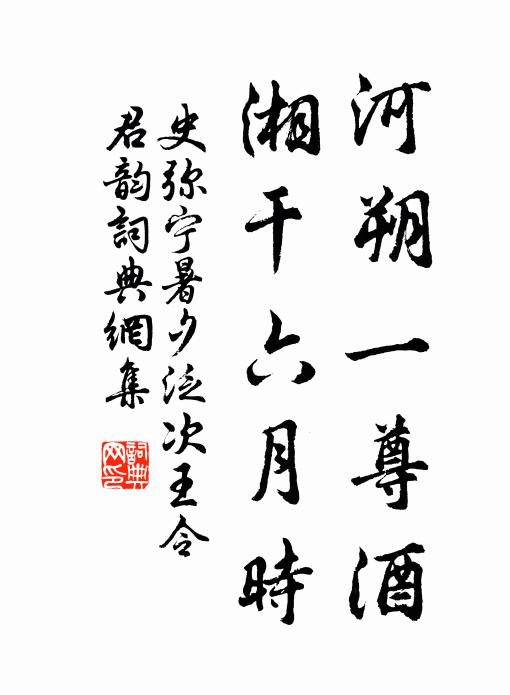 河朔一尊酒
湘干六月時
史弥宁暑夕泛次王令
君韵詞典網集
詞典
网印